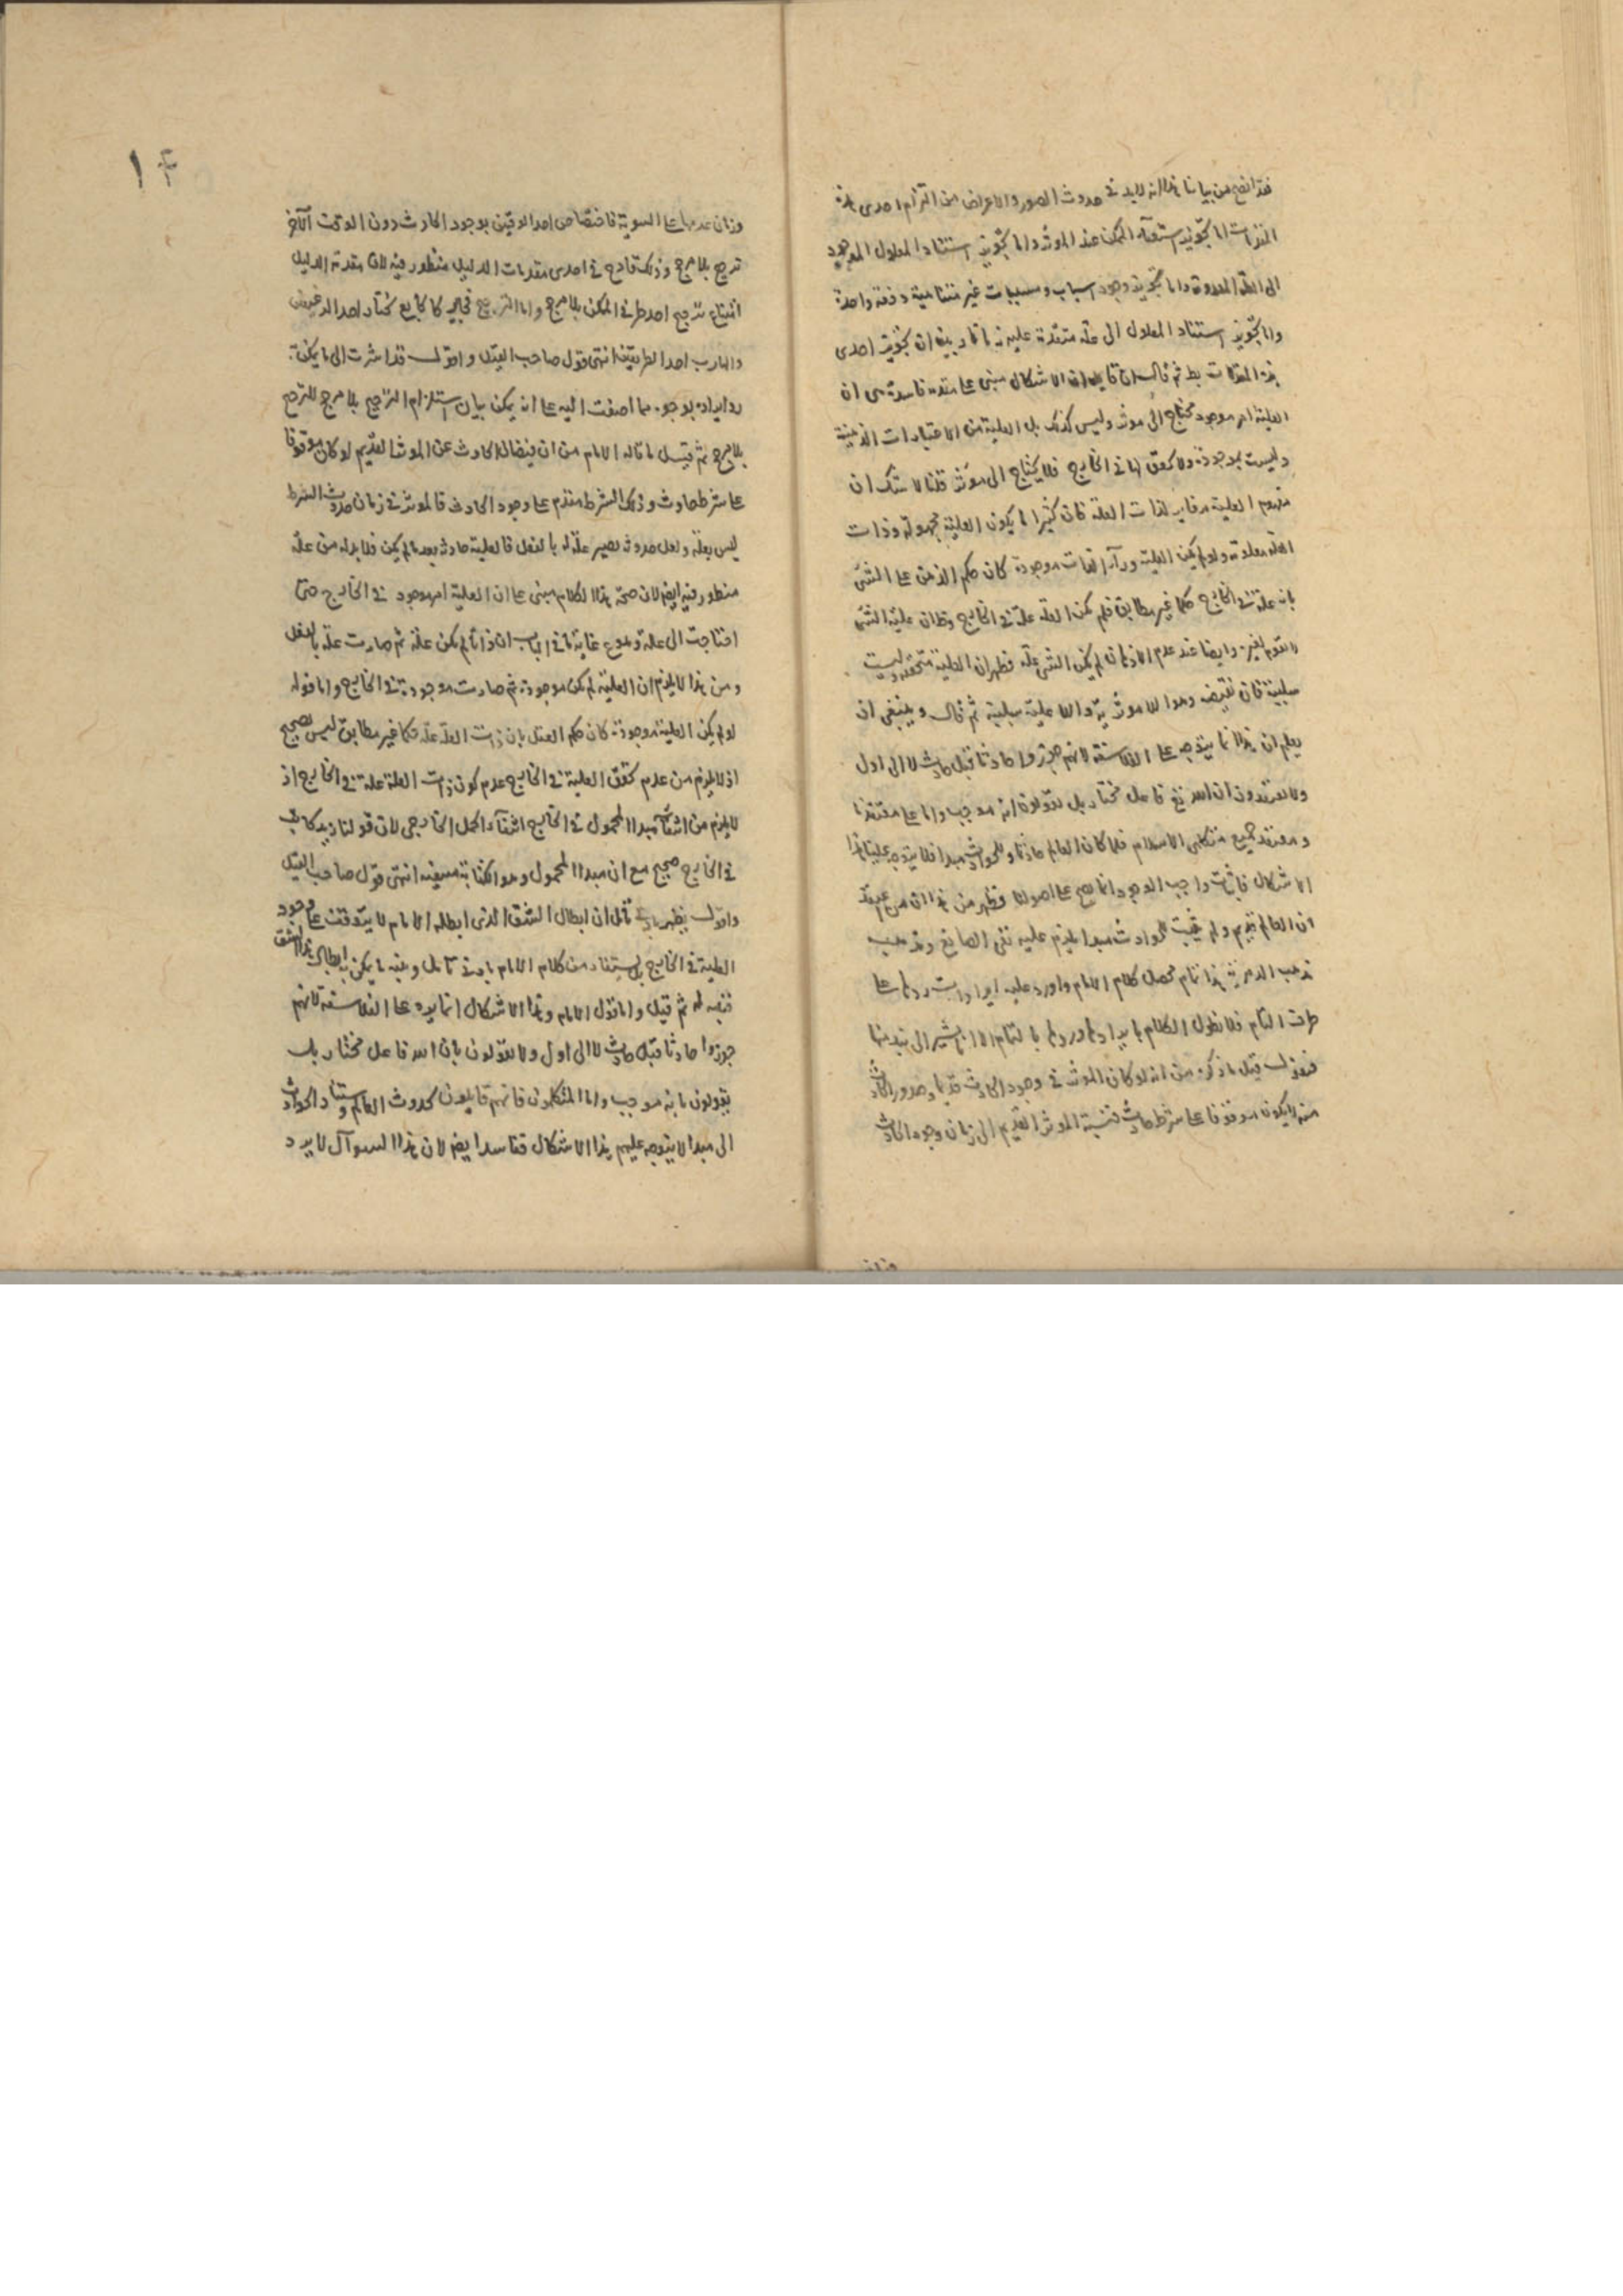 فقد اتضح من بياننا هذا انه لابد في حدوث الصور والاعراض من التزام احدى هذه
المقدمات اما تجويز استغناء الممكن عند الموثر واما تجويز استناد المعلول الموجود
الى العلة المعدومة واما تجويز وجود اسباب ومسببات غير متناهية دفعة واحدة
واما تجويز استناد المعلول الى علة متقدمة عليه زمانا وبينا ان تجويز احدى
هذه المقدمات بط ثم قال ان قايل ان الاشكال مبني على مقدمة فاسدة هي ان
العلية امر موجود محتاج الى موثر وليس كذلك بل العلية من الاعتبارات الذهنية
وليست بموجودة ولا تحقق لها في الخارج فلا يحتاج الى موثر قلنا لا شك ان
مفهوم العلية مغاير لذات العلة فان كثيرا ما يكون العلية مجهولة وذات
العلة معلومة ولو لم يكن العلية وراء الذات موجودة كان حكم الذهن على الشئ
بانه علة في الخارج حكما غير مطابق فلم يكن العلة علة في الخارج وظ ان علية الشئ
وايضا عند عدم الاذهان لم يكن الشئ علة فظهر ان العلية متحققة وليست
سلبية فان نقيضه وهو اللا موثرية واللا علية سلبية ثم قال وينبغي ان
يعلم ان هذا انما يتوجه على الفلاسفة لانهم جوزوا حادثا قبل حادث لا الى اول
ولا يعتقدون ان الله تع فاعل مختار بل يقولون انه موجب واما على معتقدنا
ومعتقد جميع متكلمي الاسلام فلما كان العالم حادثا وللحوادث مبدا فلا يتوجه علينا هذا
الاشكال فاثبات واجب الوجود انما يصح على اصولنا فظهر من هذا ان من
ان العالم قديم ولم يثبت للحوادث مبدا يلزم عليه نفي الصانع ومذهب
مذهب الدهرية هذا تمام محصل كلام الامام واورد عليه ايرادات ردها على
طرف التمام فلا نطول الكلام بايرادها وردها بالتمام الا انا نشير الى نبذ منها
فنقول قيل ما ذكره من انه لو كان الموثر في وجود الحادث قديما وصدور الحادث
منه لا يكون موقوفا على شرط حادث فنسبة الموثر القديم الى زمان وجود الحادث
۱۴
وزمان عدمها على السوية فاختصاص احد الوقتين بوجود الحادث دون الوقت الآخر
ترجح بلا مرجح وذلك قادح في احدى مقدمات الدليل منظور فيه لان مقدمة الدليل
امتناع ترجح احد طرفي الممكن بلا مرجح واما الترجيح فجايز كالجايع يختار احد الرغيفين
والهارب احد الطريقين انتهى قول صاحب القيل واقول قد اشرت الى ما يمكن
رد ايراده بوجوه مما اضفت اليه على انه يمكن بيان استلزام الترجيح بلا مرجح للترجح
بلا مرجح ثم قيل ما قاله الامام من ان فيضان الحادث عن الموثر القديم لو كان موقوفا
على شرط حادث وذلك الشرط متقدم على وجود الحادث فالموثر في زمان حدوث الشرط
ليس بعلة وبعد حدوثه يصير علة له بالفعل فالعلية حادثة بعد ما لم يكن فلا بد له من علة
منظور فيه ايضا لان صحة هذا الكلام مبني على ان العلية امر موجود في الخارج حتى
احتاجت الى علة وهو مم غاية ما في الباب ان ذاتا لم يكن علة ثم صارت علة بالفعل
ومن هذا لا يلزم ان العلية لم يكن موجودة ثم صارت موجودة في الخارج واما قوله
لو لم يكن العلية موجودة كان حكم العقل بان ذات العلة علة حكما غير مطابق ليس بصحيح
اذ لا يلزم من عدم تحقق العلية في الخارج عدم كون ذات العلة علة في الخارج اذ
لا يلزم من انتفاء مبدا المحمول في الخارج انتفاء الحمل الخارجي لان قولنا زيد كاتب
في الخارج صحيح مع ان مبدا المحمول وهو الكتابة منتفية انتهى قول صاحب القيل
واقول يظهر بادنى تامل ان ابطال الشق الذي ابطله الامام لا يتوقف على وجود
العلية في الخارج بل يستفاد من كلام الامام بادنى تامل وتنبه ما يمكن به ابطال هذا الشق
فتنبه له ثم قيل واما قول الامام وهذا الاشكال انما يرد على الفلاسفة لانهم
جوزوا حادثا قبل حادث لا الى اول ولا يقولون بان الله فاعل مختار بل
يقولون بانه موجب واما المتكلمون فانهم قايلون بحدوث العالم واستناد الحوادث
الى مبدا لا يتوجه عليهم هذا الاشكال ففاسد ايضا لان هذا السوآل لا يرد